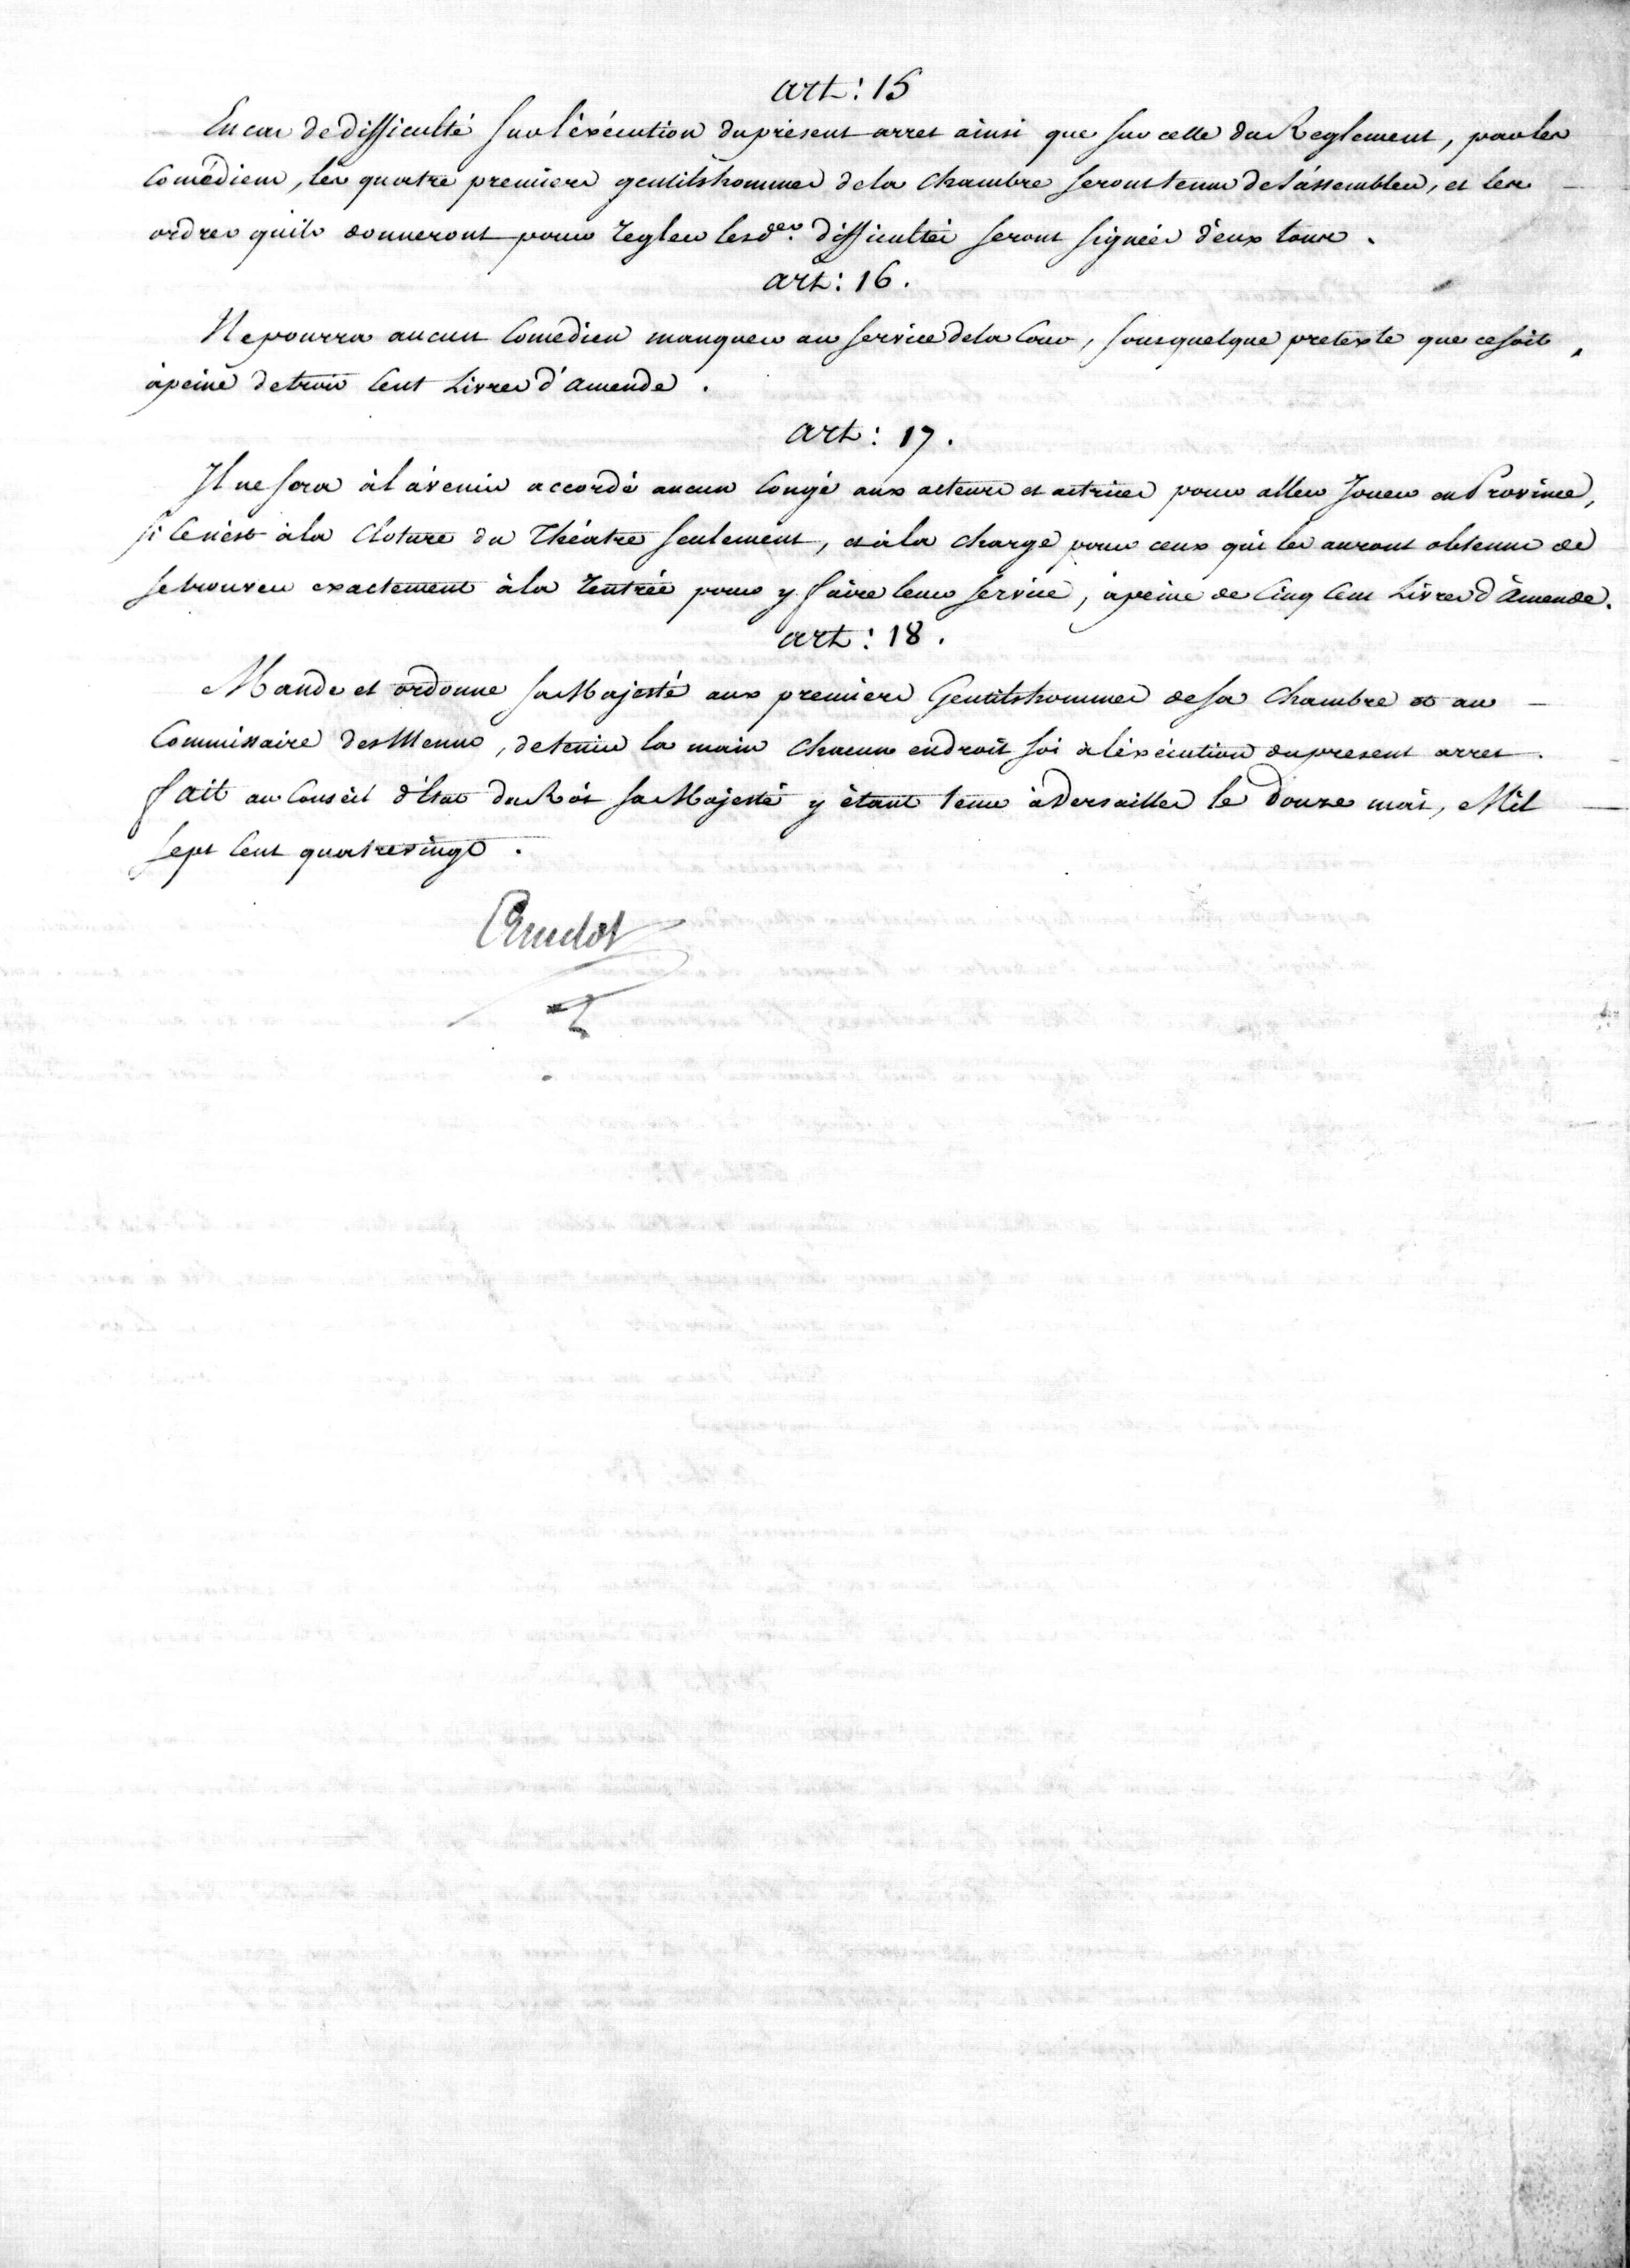 art: 15
En cas de difficulté sur l'éxécution du présent arret ainsi que sur celle du Reglement, par les
Comédiens, les quatre premiers gentilshommes de la Chambre seront tenus de s'assembler, et les
ordres quils donneront pour regler lesdes. difficultés seront signées d'eux tous.
art: 16.
Ne pourra aucun Comedien manquer au service de la Cour, sous quelque pretexte que ce soit,
à peine de trois cent Livres d'amende.
art: 17.
Il ne sera à l'avenir accordé aucun Congé aux acteurs et actrices pour aller Jouer en Province,
si ce n'est à la Cloture du Théatre seulement, et à la charge pour ceux qui les auront obtenus de
se trouver exactement à la rentrée pour y faire leur service, à peine de Cinq Cent Livres d'Amende.
art: 18.
Mande et ordonne sa Majesté aux premiers Gentilshommes de sa Chambre et au
Commissaire des Menus, de tenir la main chacun endroit soi à l'éxécution du present arret.
fait au Conseil d'Etat du Roi sa Majesté y étant tenu à Versailles le douze mai, Mil
sept Cent quatrevingt.
Amelot